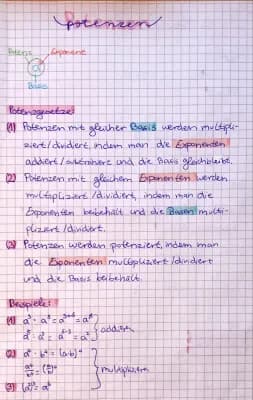 Potenzen
Potenz Exponent
a
Basis
Potenzgesetze:
(1) Potenzen mit gleicher Basis werden multipli-
ziert/dividiert, indem man die Exponenten
addiert/subtrahiere und die Basis gleichbleibt.
(2) Potenzen mit gleichem Exponenten werden
multipliziert/dividiert, indem man die
Exponenten beibehält und die Basen multi-
pliziert/dividiert.
(3) Potenzen werden potenziert, indem man
die Exponenten multipliziert/dividiert
und die Basis beibehält.
Beispiele:
(1)
addieren
(2) aⁿ · bⁿ = (a·b)ⁿ
multiplizieren
(3)